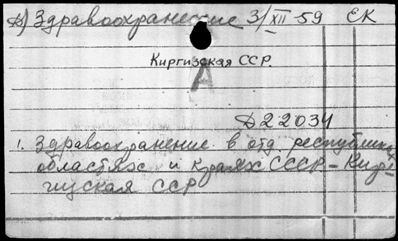 А) Здравоохранение 3/XII-59 ЕК
Киргизская ССР.
А
Д22034
1. Здравоохранение в отд. республиках
областях и краях СССР - Кирги-
гизская ССР